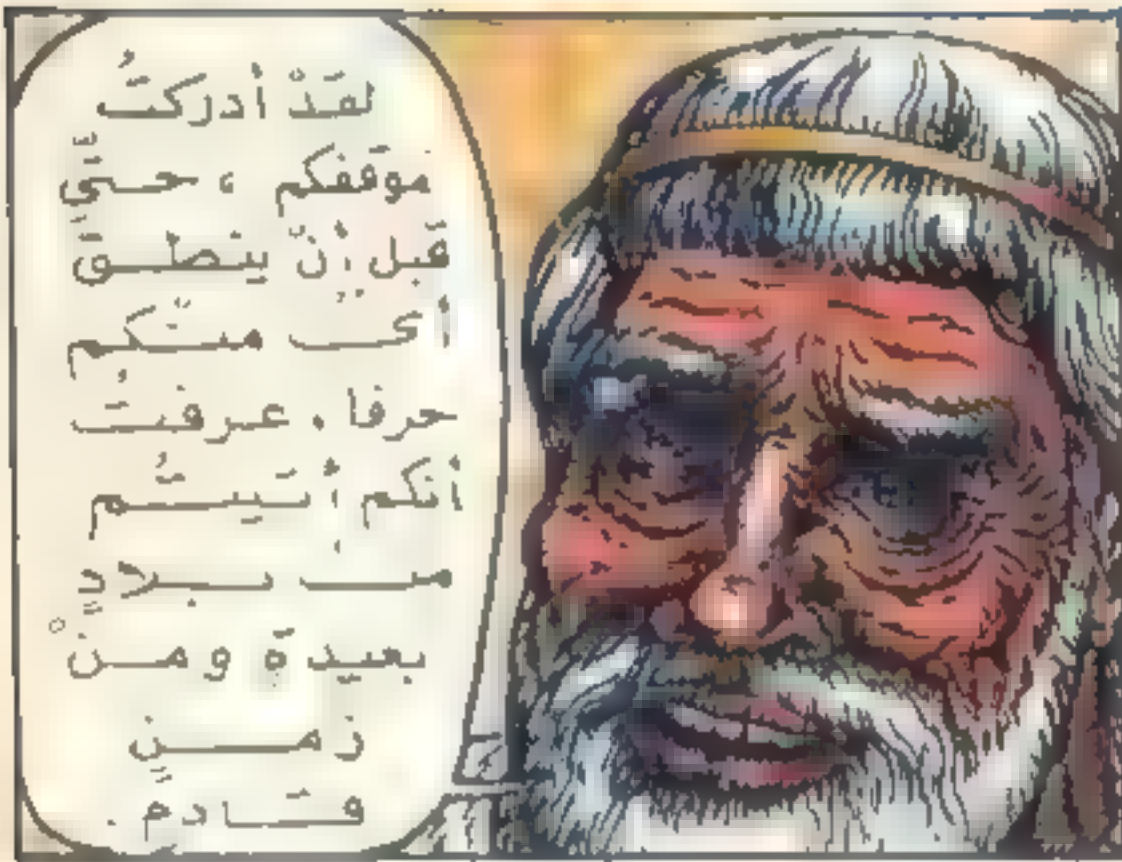 لقَدْ أدركتُ
موقفكم ، حتَّى
قبل أنْ ينطق
أى منكم
حرفا ، عرفتُ
أنكم أتيتُم
من بلادٍ
بعيدةٍ ومنْ
زمنٍ
قادمٍ .